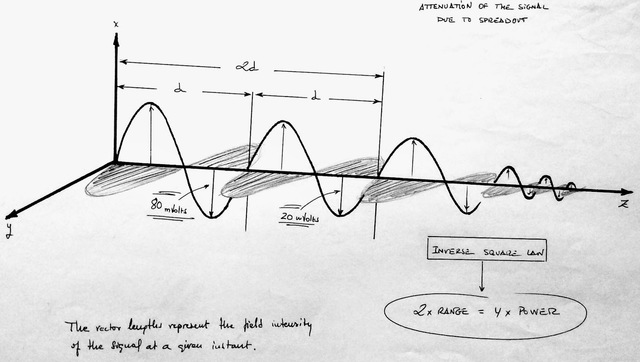 ATTENUATION OF THE SIGNAL
DUE TO SPREADOUT
x
2d
d
d
80 mVolts
20 mVolts
y
z
INVERSE SQUARE LAW
2 x RANGE = 4 x POWER
The vector lengths represent the field intensity
of the signal at a given instant.